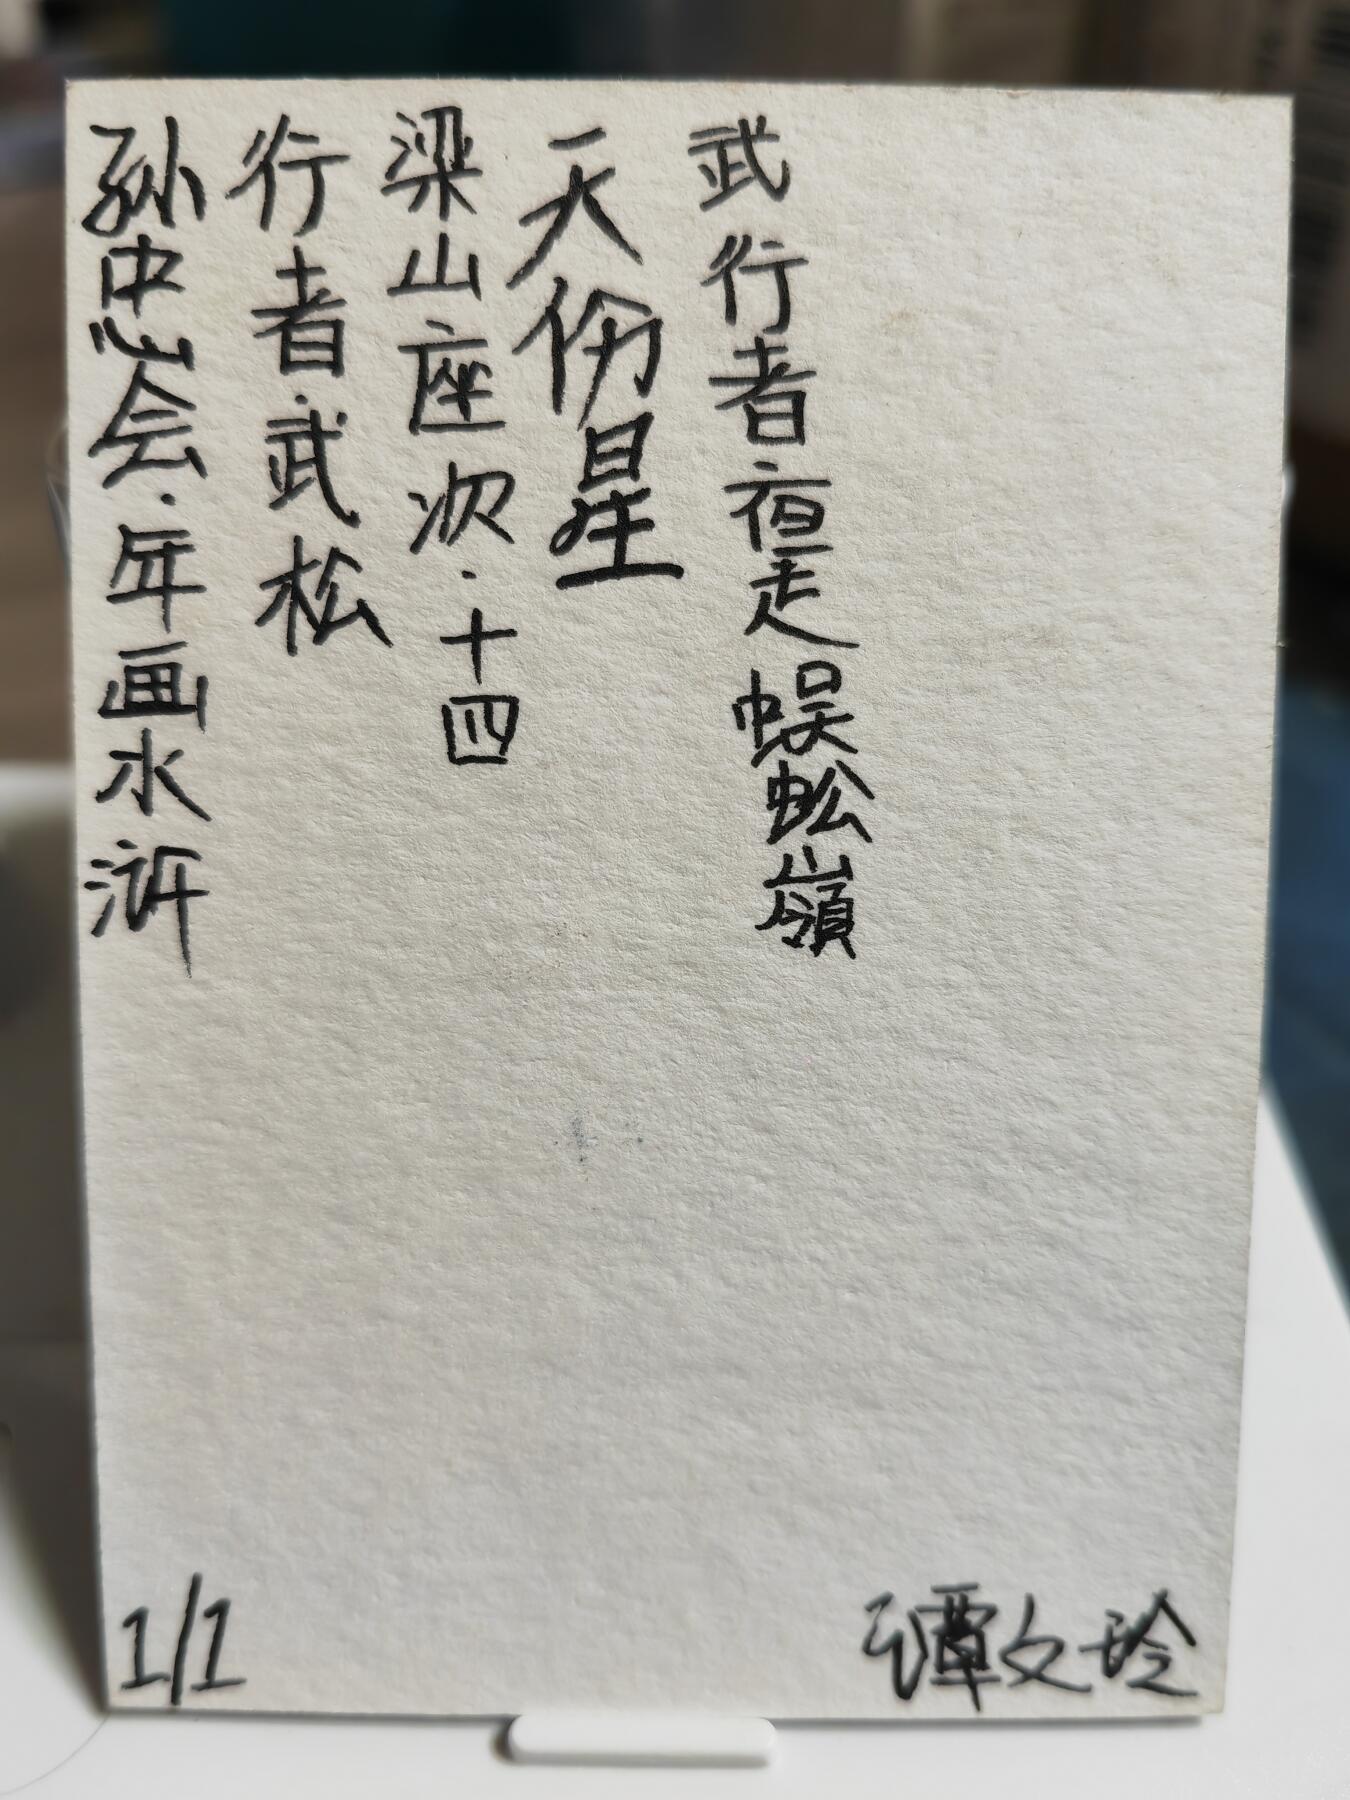 孙忠会·年画水浒
行者·武松
梁山座次·十四
天伤星
武行者夜走蜈蚣嶺
1/1
谭文玲